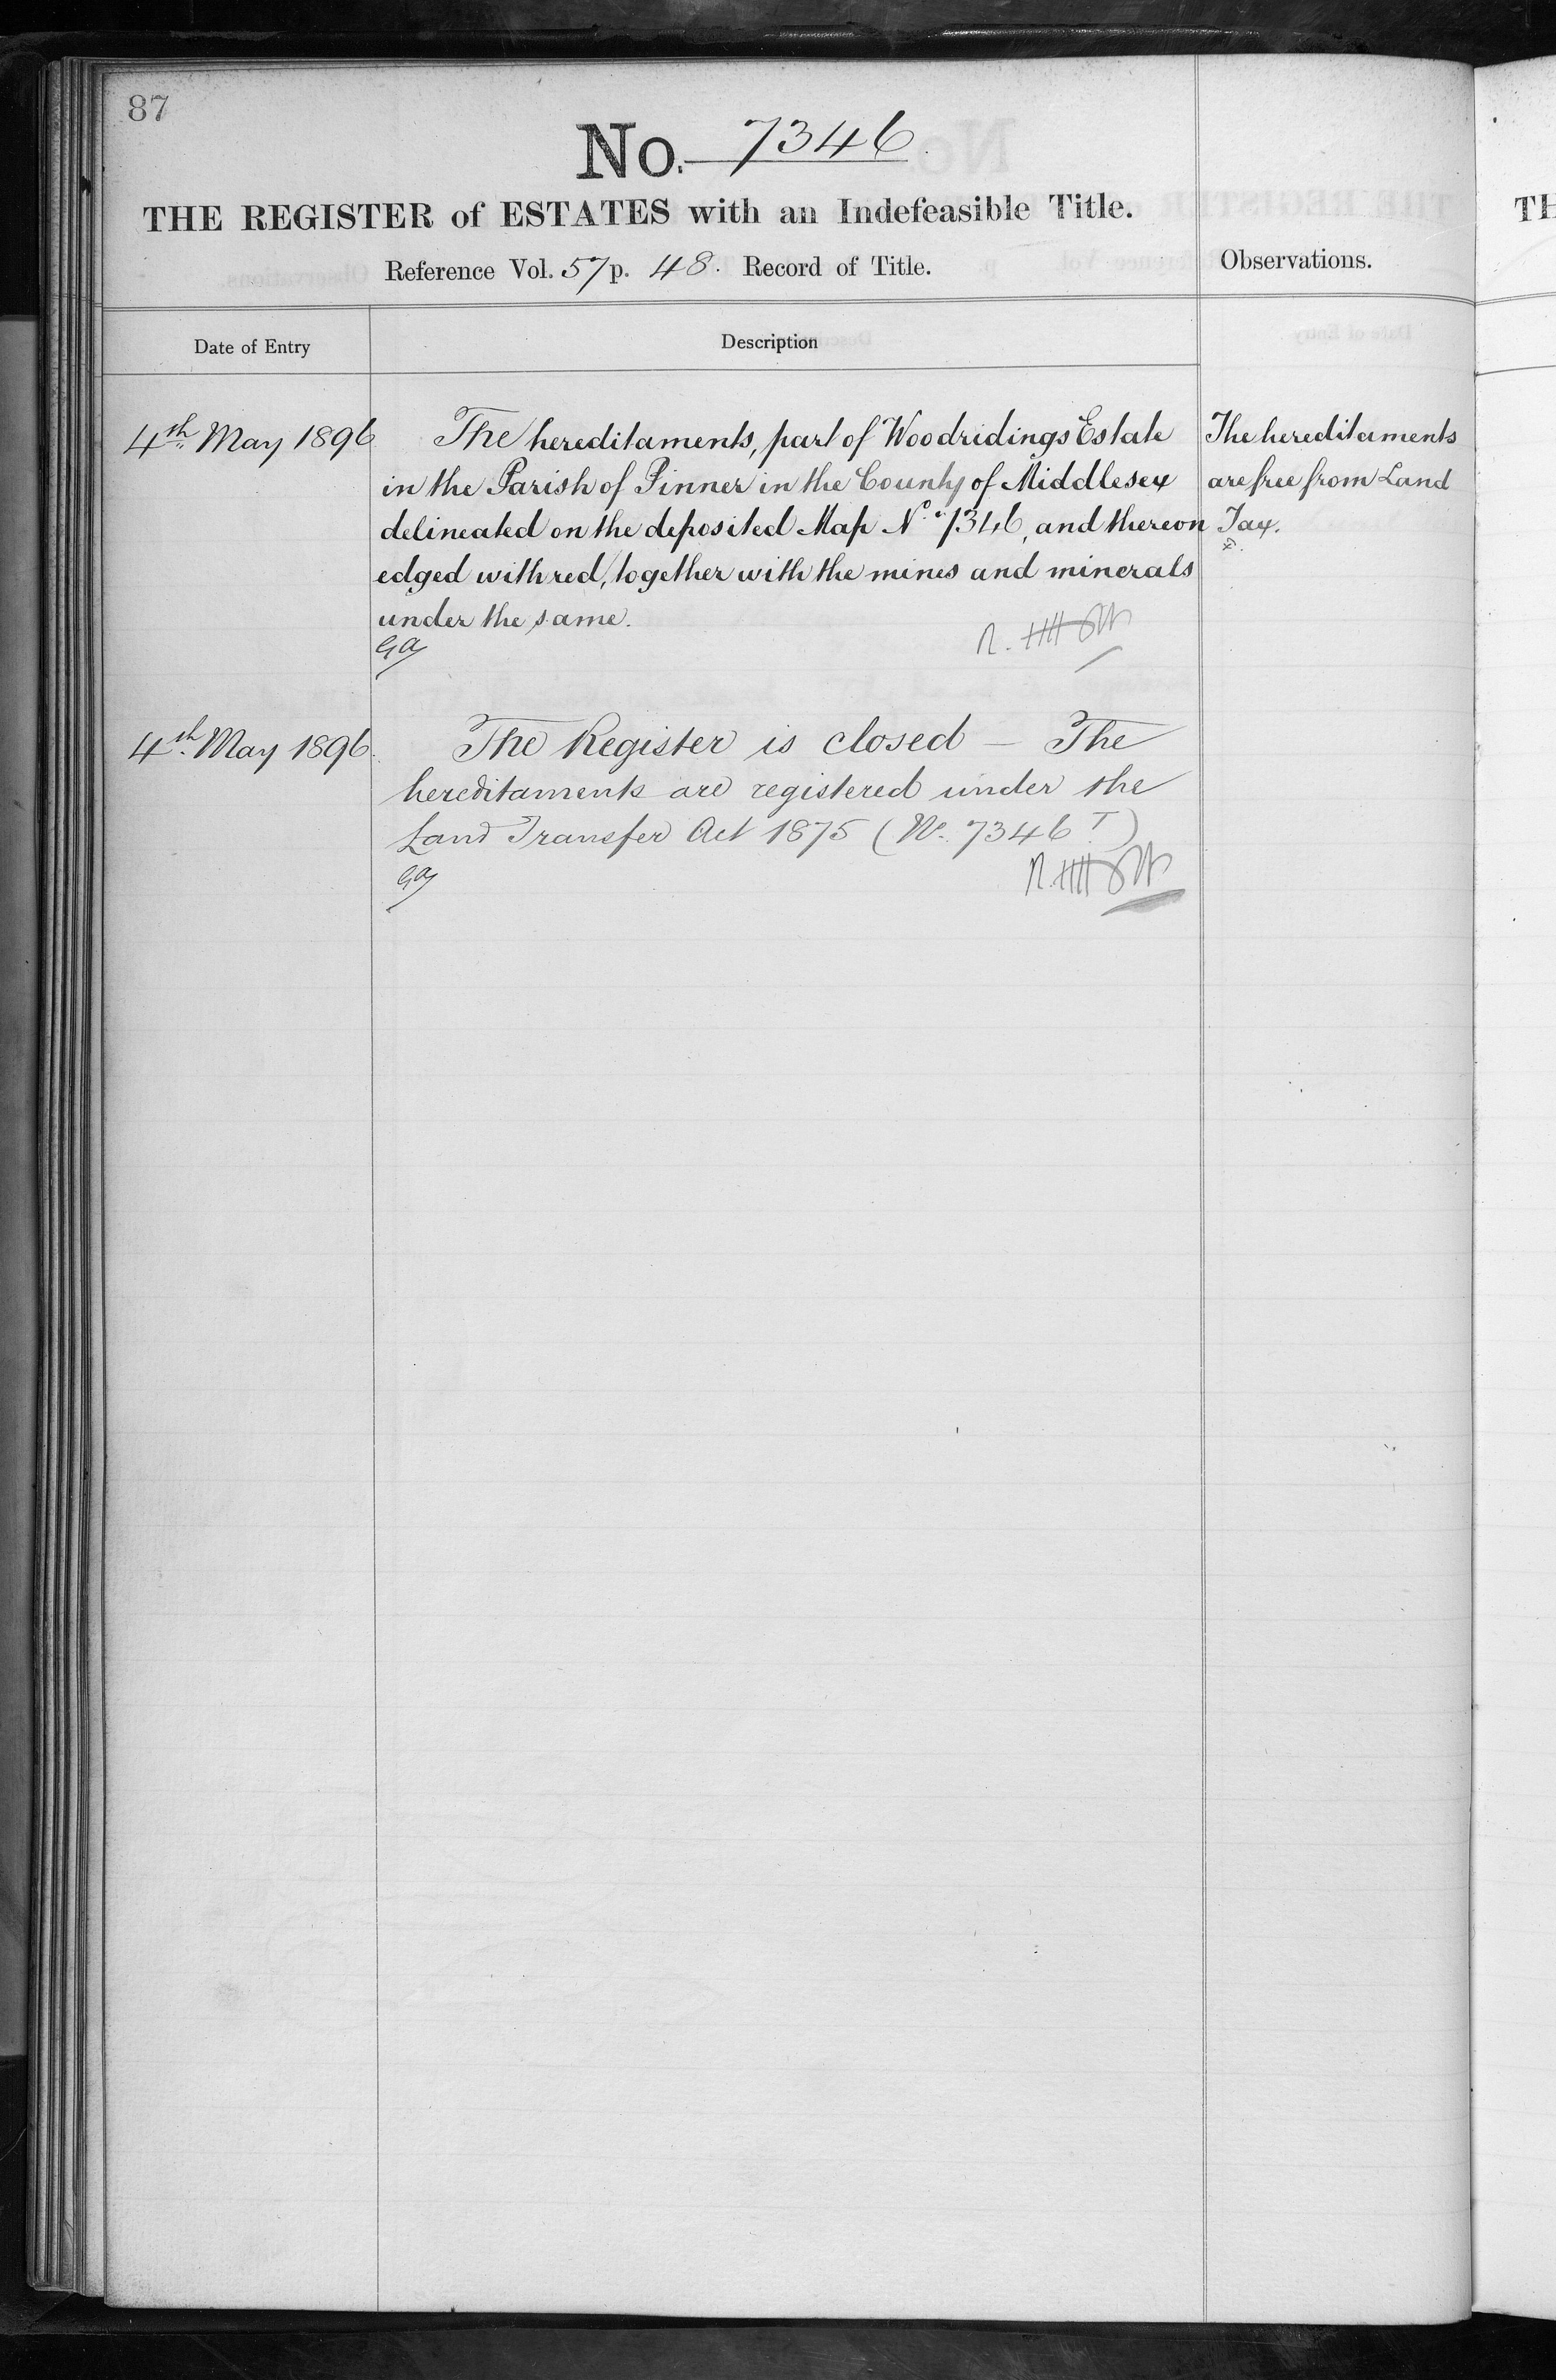 87
No. 7346
THE REGISTER of ESTATES with an Indefeasible Title.
Reference Vol. 57 p. 48. Record of Title.
Observations.
Date of Entry
Description
4th May 1896
The hereditaments, part of Woodridings Estate
in the Parish of Pinner in the County of Middlesex
delineated on the deposited Map No. 7346, and thereon
edged with red, together with the mines and minerals
under the same.
The hereditaments
are free from Land
Tax.
4th May 1896.
The Register is closed — The
hereditaments are registered under the
Land Transfer Act 1875 (No. 7346 T)
TH